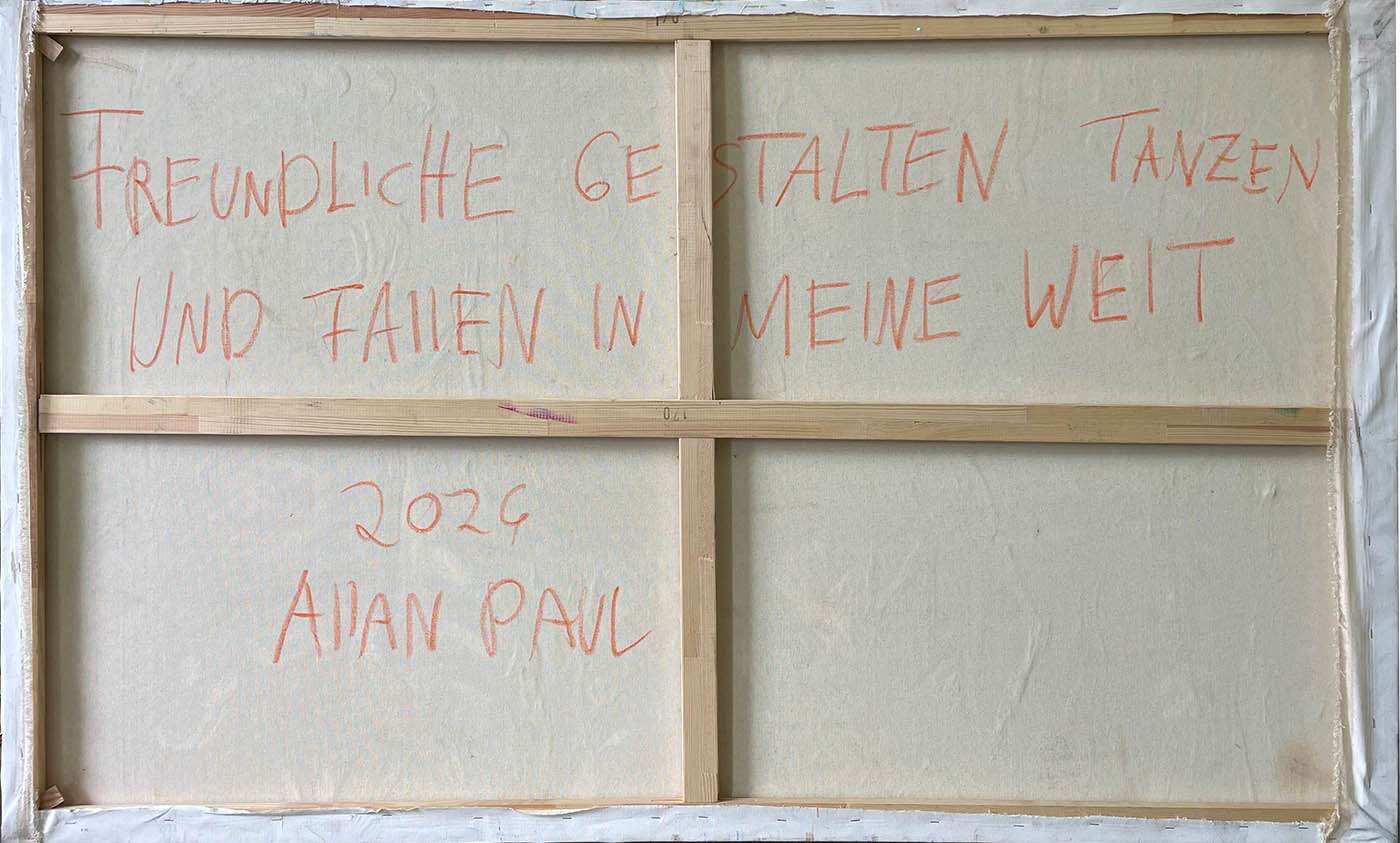 FREUNDLICHE GESTALTEN TANZEN
UND FAllEN IN MEINE WElT
170
2024
AllAN PAUL